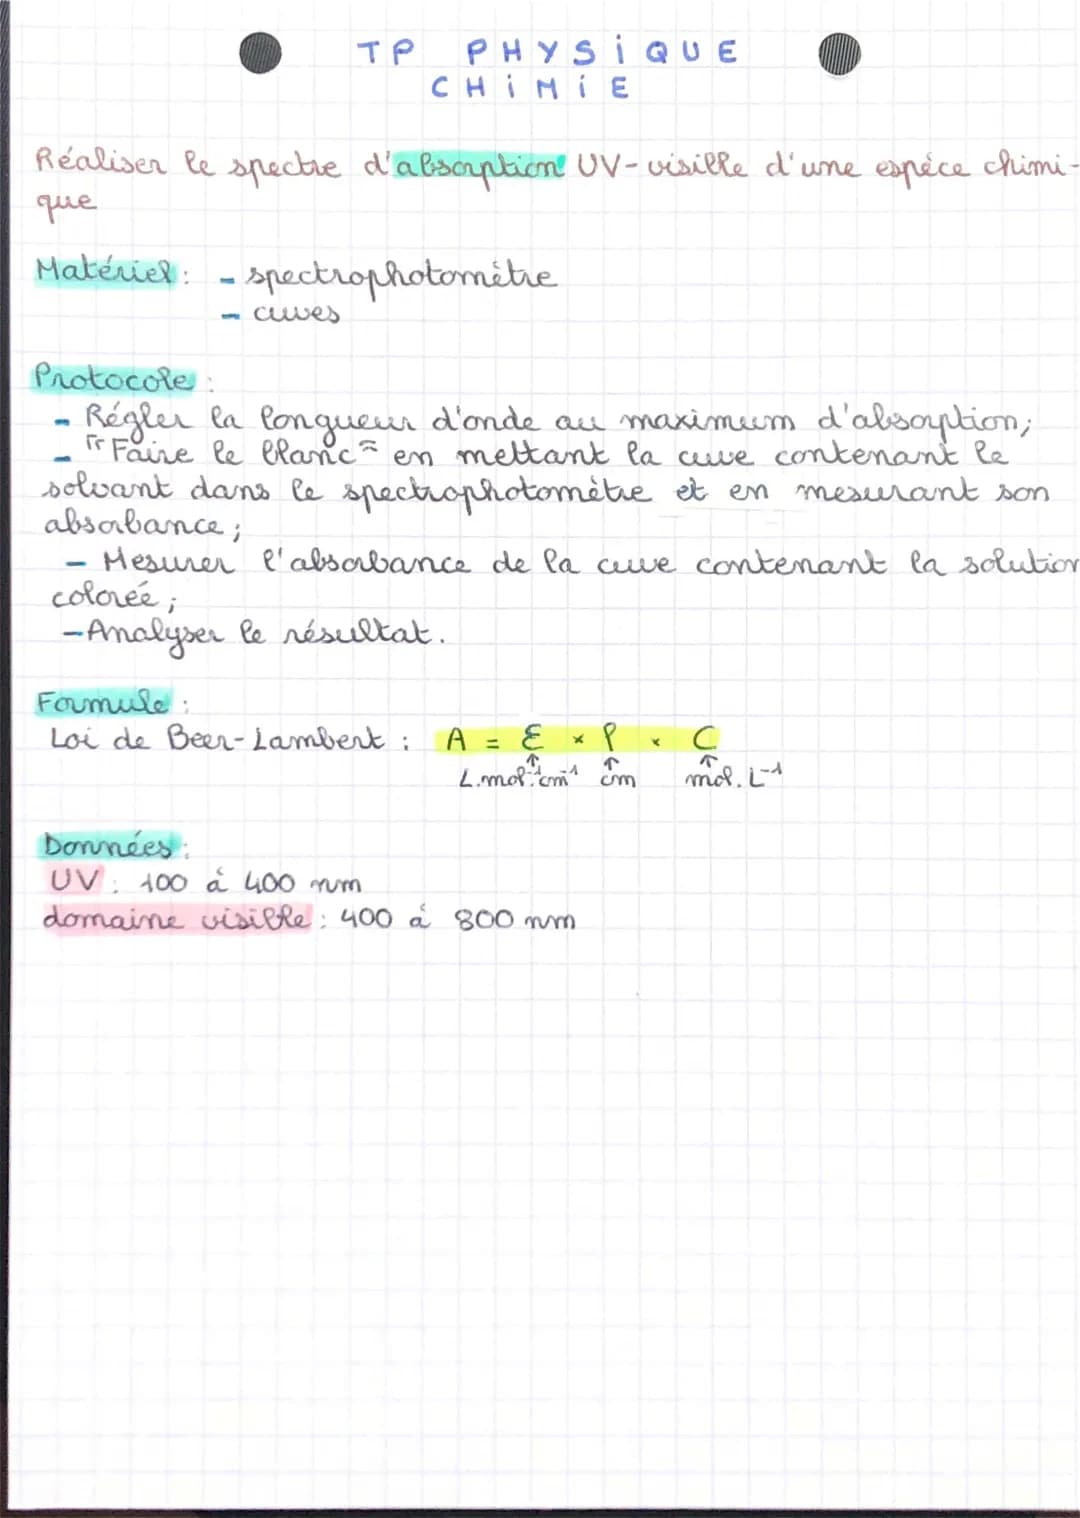 TP PHYSiQUE
CHiMiE
Réaliser le spectre d'absorption UV-visible d'une espéce chimi-
que
Matériel : - spectrophotomètre
- cuves
Protocole :
- Régler la longueur d'onde au maximum d'absorption;
- "Faire le blanc" en mettant la cuve contenant le
solvant dans le spectrophotomètre et en mesurant son
absorbance ;
- Mesurer l'absorbance de la cuve contenant la solution
colorée ;
- Analyser le résultat.
Formule :
Loi de Beer-Lambert : A = Ɛ × l × C
↑ ↑ ↑
L.mol⁻¹.cm⁻¹ cm mol.L⁻¹
Données :
UV : 100 á 400 nm
domaine visible : 400 á 800 nm